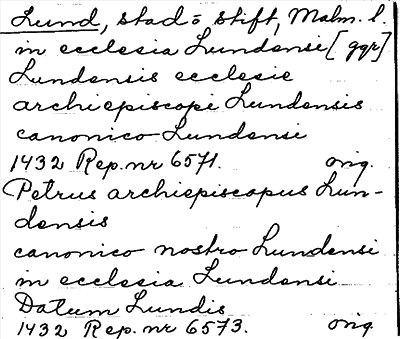 Lund, stad o stift, Malm. l.
in ecclesia Lundensi [ggr]
Lundensis ecclesie
archiepiscopi Lundensis
canonico Lundensi
1432 Rep. nr 6571. orig.
Petrus archiepiscopus Lun-
densis
canonico nostro Lundensi
in ecclesia Lundensi
Datum Lundis
1432 Rep. nr 6573. orig.